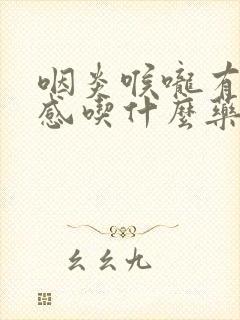 咽炎喉嚨有
感喫什麼藥
幺幺九